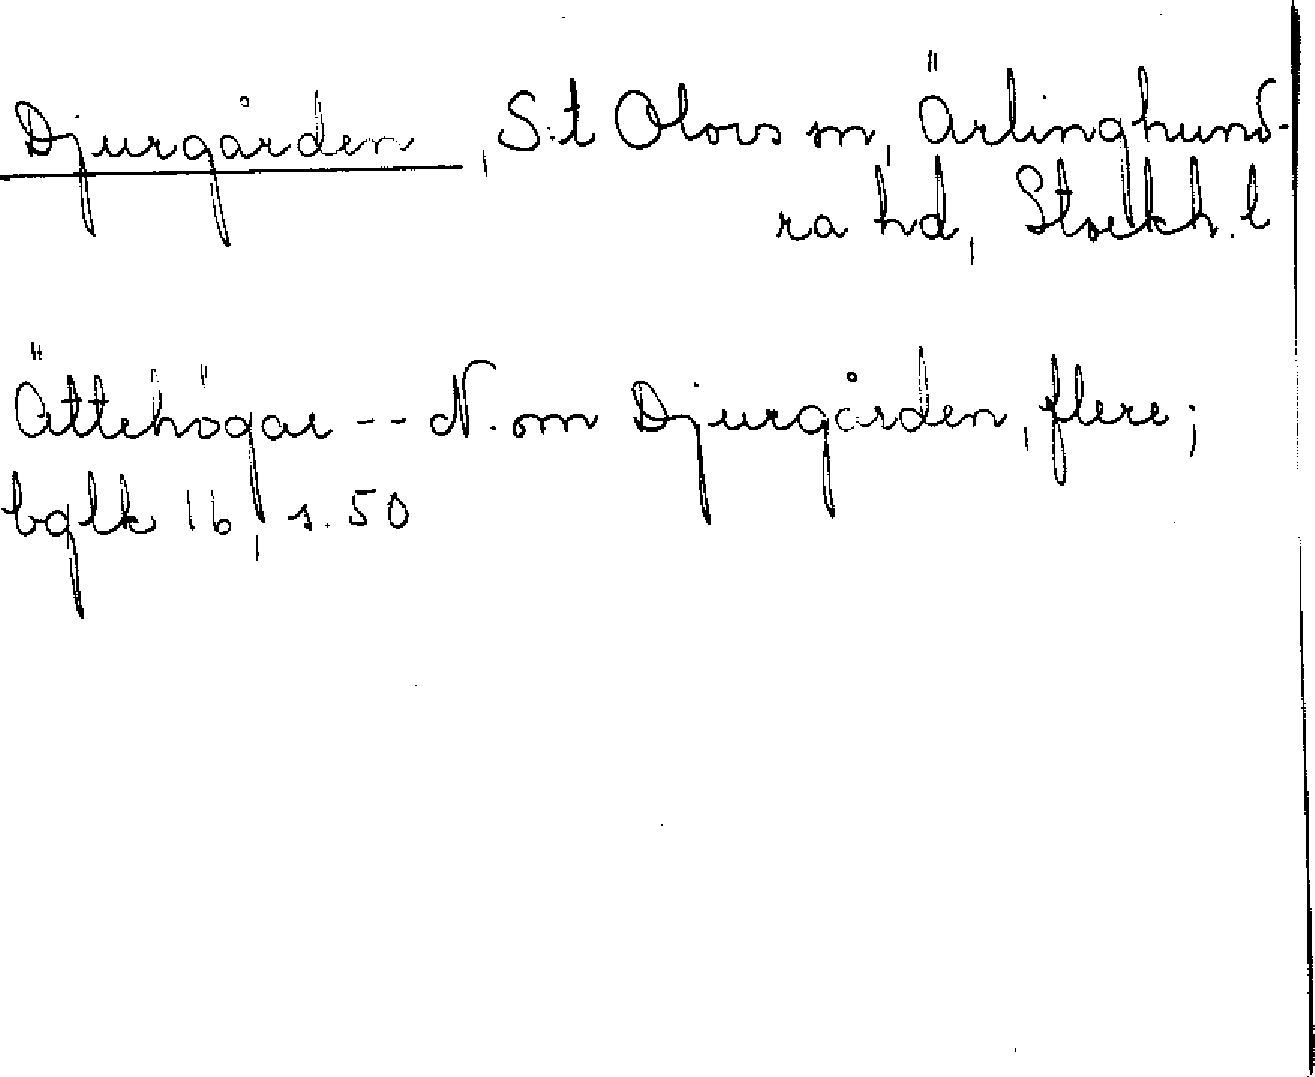 Djurgården, S:t Olovs sn, Ärlinghund-
ra hd, Stockh. l
Ättehögar -- N. om Djurgården, flere;
bglk 16, s. 50